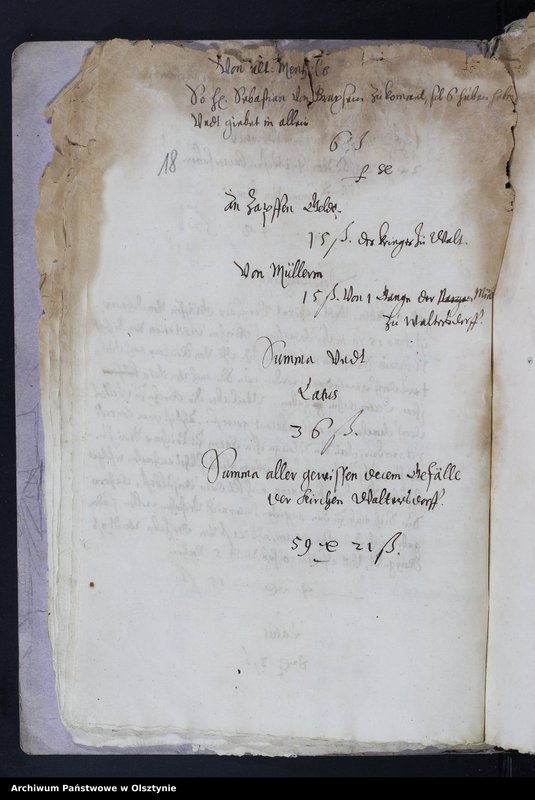 Von
So H. Sebastian von zukommet, sol 6 huben
Undt giebet in allem
6 ß
18
An Zapffen Geldt.
15 ß. der krüger zu Walt.
Von Müllern
15 ß. Von 1 Gange der
zu Waltersdorff.
Summa Undt
Latus
36 ß.
Summa aller gewissen Gefälle
der Kirchen Waltersdorff.
59 21 ß.
Archiwum Państwowe w Olsztynie